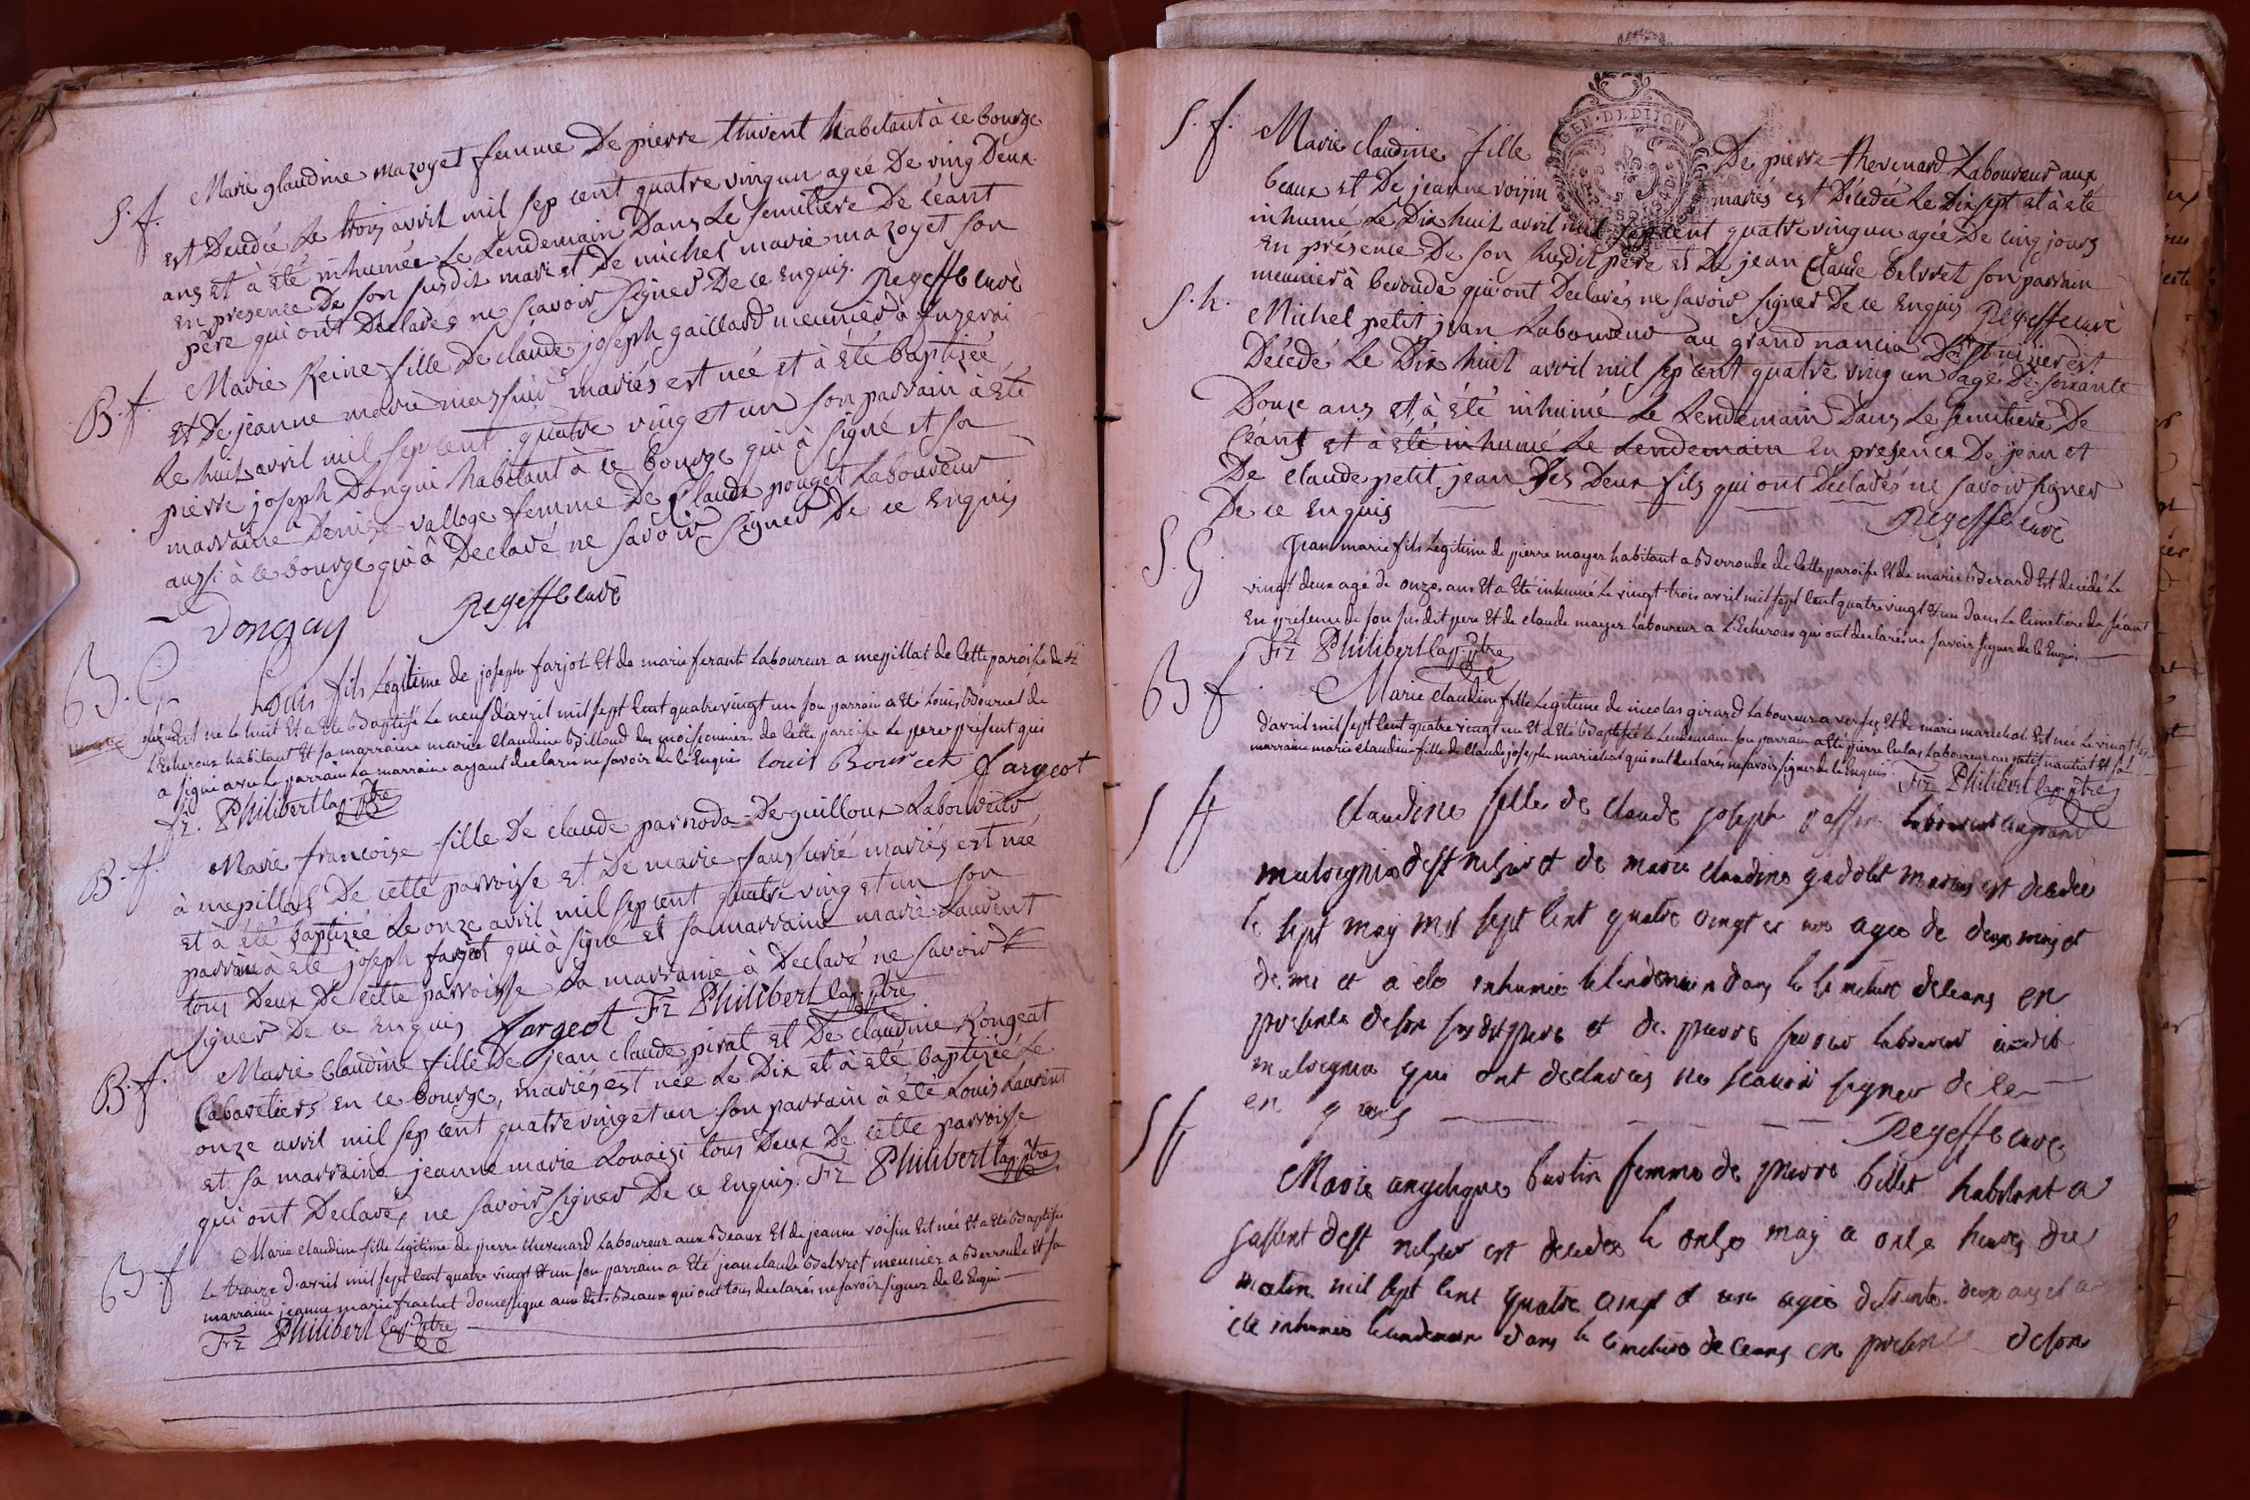 S. f. Marie glaudine mazoyet femme De pierre thivent habitant à ce bourge
est Decedée Le trois avril mil sep cent quatre ving un agée De ving Deux
ans et à été inhumée Le Lendemain Dans Le semitiere De Céant
En presence De son susdit mari et De michel marie mazoyet son
père qui ont Declarés ne scavoir signer De ce Enquis. Regeffe curé
B. f. Marie Reine fille De claude joseph gaillard meunier à
et De jeanne marie mariés est née et à été baptizée
Le huit avril mil sep cent quatre ving et un son parrain à été
pierre joseph Donguì habitant à ce bourge qui à signé et sa
marraine Denize valloge femme De Claude pouget Laboureur
aussi à ce bourge qui à Declaré ne savoir signer De ce Enquis
Donguy Regeffe curé
B. G. Louis fils Legitime de joseph farjot Et de marie ferant Laboureur a mepillat de Cette paroisse de St
nizier Est né Le huit Et a Eté Baptisé Le neuf d'avril mil sept Cent quatre vingt un son parrain a Eté Louis Bourcet de
L'Echeroux habitant Et sa marraine marie Claudine Billoud des moissonniers de Cette paroisse Le pere present qui
a signé avec Le parrain La marraine ayant declaré ne savoir de Ce Enquis louis Bourcet fargeot
fr. Philibert cap. ptre
B. f. Marie francoise fille De claude parnoda-Deguilloux Laboureur
à mepillat De cette parroisse et De marie faussurié mariés est née
et à été baptizée Le onze avril mil sep cent quatre ving et un son
parrain à été joseph fargeot qui à signé et sa marraine marie Laurent
tous Deux De cette parroisse La marraine à Declaré ne savoir
signer De ce Enquis fargeot Fr Philibert cap. ptre
B. f. Marie Claudine fille De jean claude pirat et De claudine Rongeat
Cabaretiers en ce bourge, mariés est née Le Dix et à été baptizée Le
onze avril mil sep cent quatre ving et un son parrain à été Louis Laurent
et sa marraine jeanne marie Louaizi tous Deux De cette parroisse
qui ont Declarés ne savoir signer De ce Enquis. Fr Philibert cap. ptre
B. f Marie Claudine fille Legitime de pierre thevenard Laboureur aux Beaux Et de jeanne voisin Est née Et a Eté Baptisée
Le treize d'avril mil sept Cent quatre vingt Et un son parrain a Eté jean claude Belvret meunier a Berroude Et sa
marraine jeanne marie frachet domestique aux dits Beaux qui ont tous declarés ne savoir signer de Ce Enquis
Fr Philibert cap. ptre
GEN. DE DIJON
S. f. Marie claudine fille De pierre thevenard Laboureur aux
beaux et De jeanne voisin mariés est Décedée Le Dix sept et à été
inhumé Le Dix huit avril mil sep cent quatre ving un agée De cinq jours
en présence De son susdit père et De jean Claude belvret son parrain
meunier à beroude qui ont Declarés ne savoir signer De ce Enquis Regeffe curé
S. h. Michel petit jean Laboureur au grand nancia De St nizier est
Décedé Le Dix huit avril mil sep cent quatre ving un agé De soixante
Douze ans et à été inhumé Le Lendemain Dans Le semitiere De
Céant et à été inhumé Le Lendemain En presence De jean et
De claude petit jean ses Deux fils qui ont Declarés ne savoir signer
De ce Enquis Regeffe curé
S. G Jean marie fils Legitime de pierre mayer habitant a Berroude de Cette paroisse Et de marie Berard Est decedé Le
vingt deux agé de onze ans Et a Eté inhumé Le vingt trois avril mil sept Cent quatre vingt Et un dans Le Cimetiere de Céant
En présence de son susdit pere Et de claude mayer Laboureur a L'Echeroux qui ont declarés ne savoir signer de Ce Enquis
Fr Philibert cap. ptre
B f. Marie Claudine fille Legitime de nicolas girard Laboureur a versey Et de marie marechal Est née Le vingt
d'avril mil sept Cent quatre vingt un Et a Eté Baptisée Le Lendemain son parrain a Eté pierre Laboureur au petit nantiat Et sa
marraine marie claudine fille de Claude joseph marechal qui ont declarés ne savoir signer de Ce Enquis Fr Philibert cap. ptre
S f Claudine fille de claude joseph laboureur au grand
malvegnia dest nesier et de marie claudine gadolet maries est decedeé
le sept may mil sept cent quatre vingt et un agee de deux mois et
demi et a ete inhumée le lendemain dans le cimetiere de ceans en
presence de son susdit pere et de pierre laboureur audit
malvegnia qui ont declarés ne scavoir signer de ce
en quis Regeffe curé
S f Marie angelique burtin femme de pierre billet habitant a
dest nesier est decedee le onze may a onze heures du
matin mil sept cent quatre vingt et un agee de trente deux ans et a
ete inhumée le lendemain dans le cimetiere de ceans en presence de son